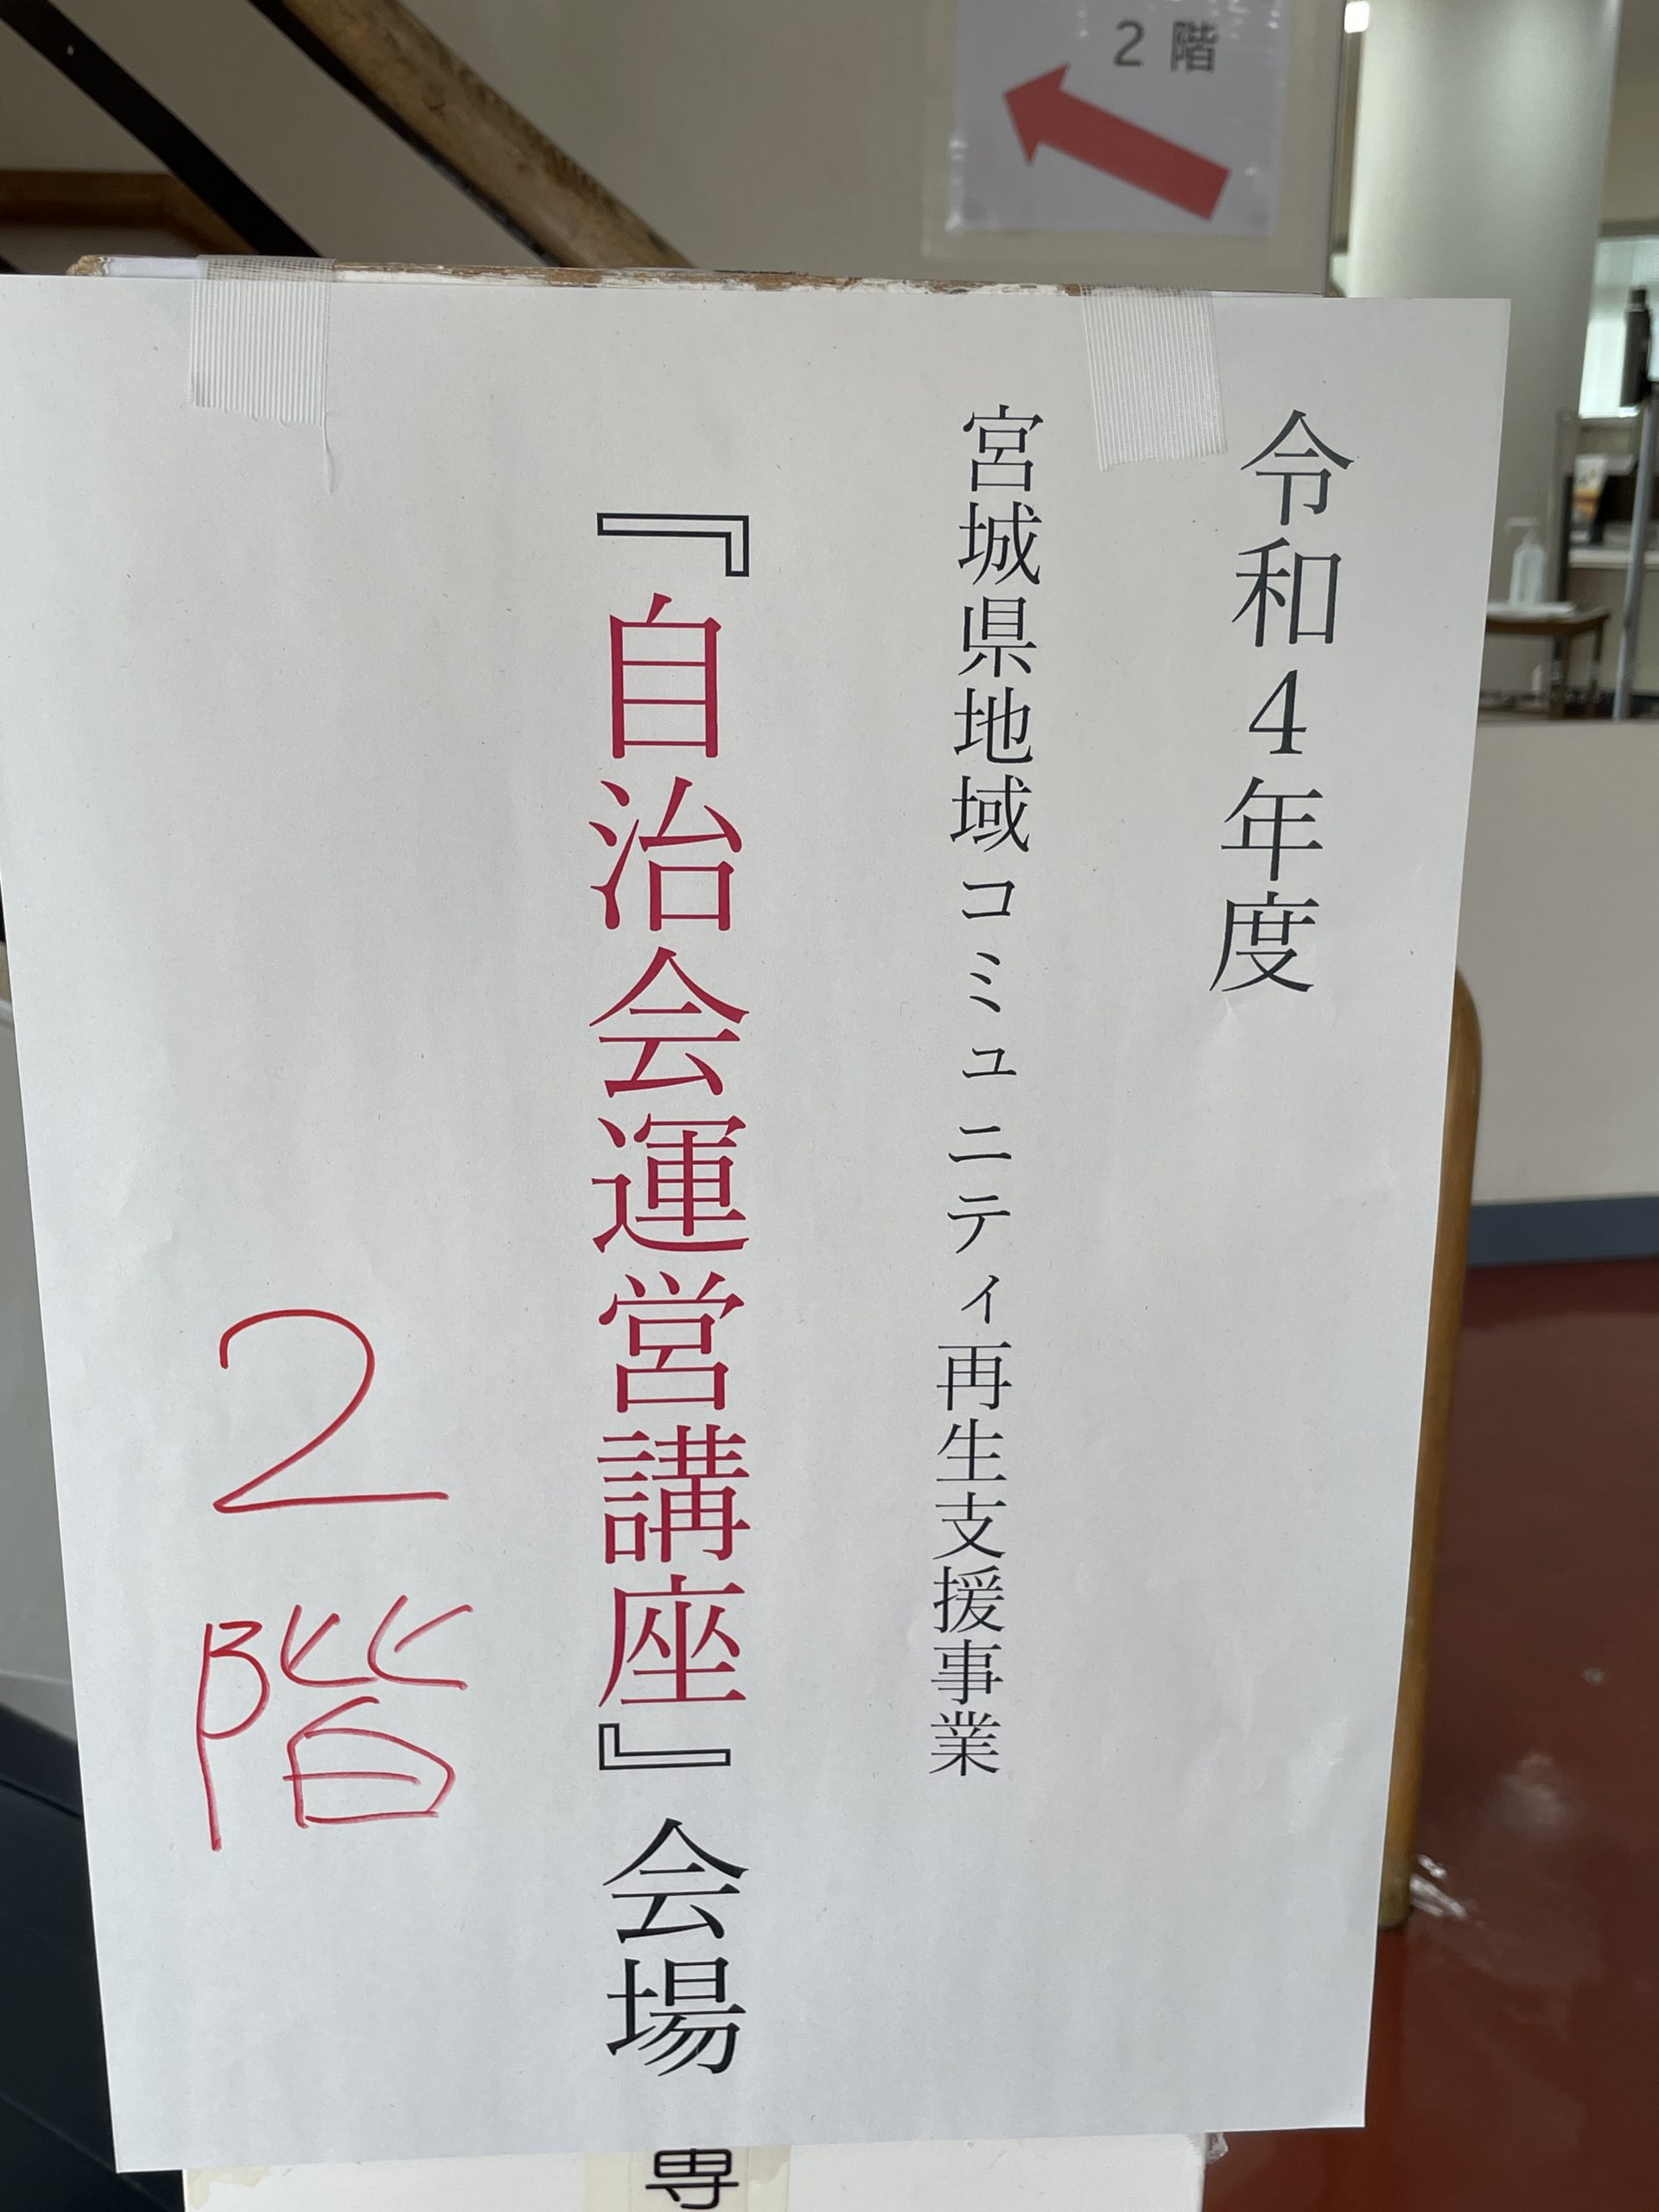 2 階
令和4年度
宮城県地域コミュニティ再生支援事業
『自治会運営講座』会場
2階
専